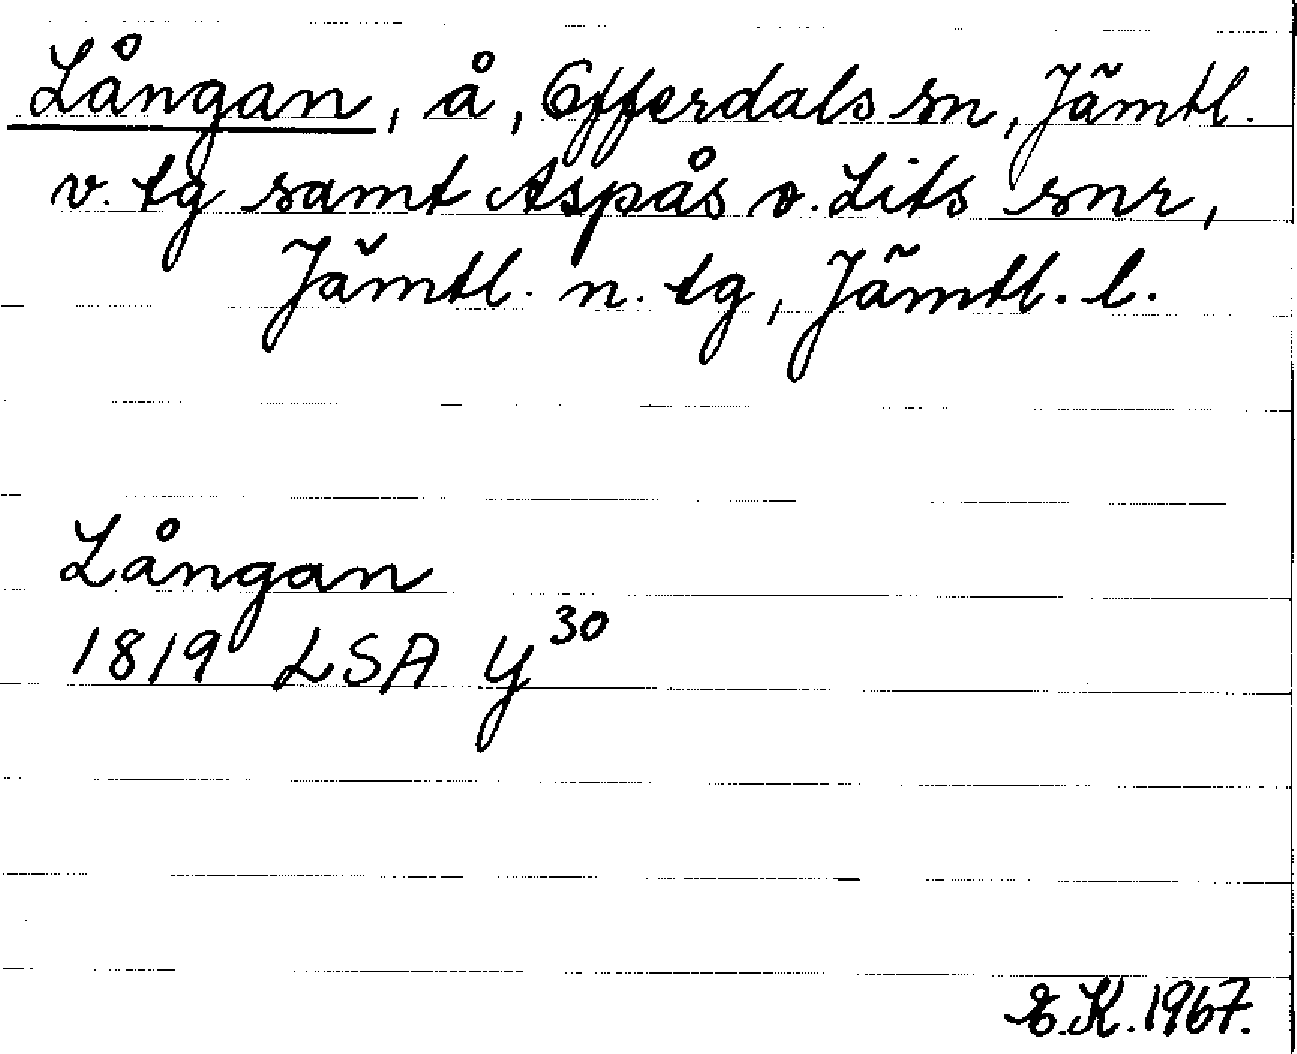 Långan, å, Offerdals sn, Jämtl.
v. tg samt Aspås o. Lits snr,
Jämtl. n. tg, Jämtl. l.
Långan
1819 LSA Y30
E.K. 1967.